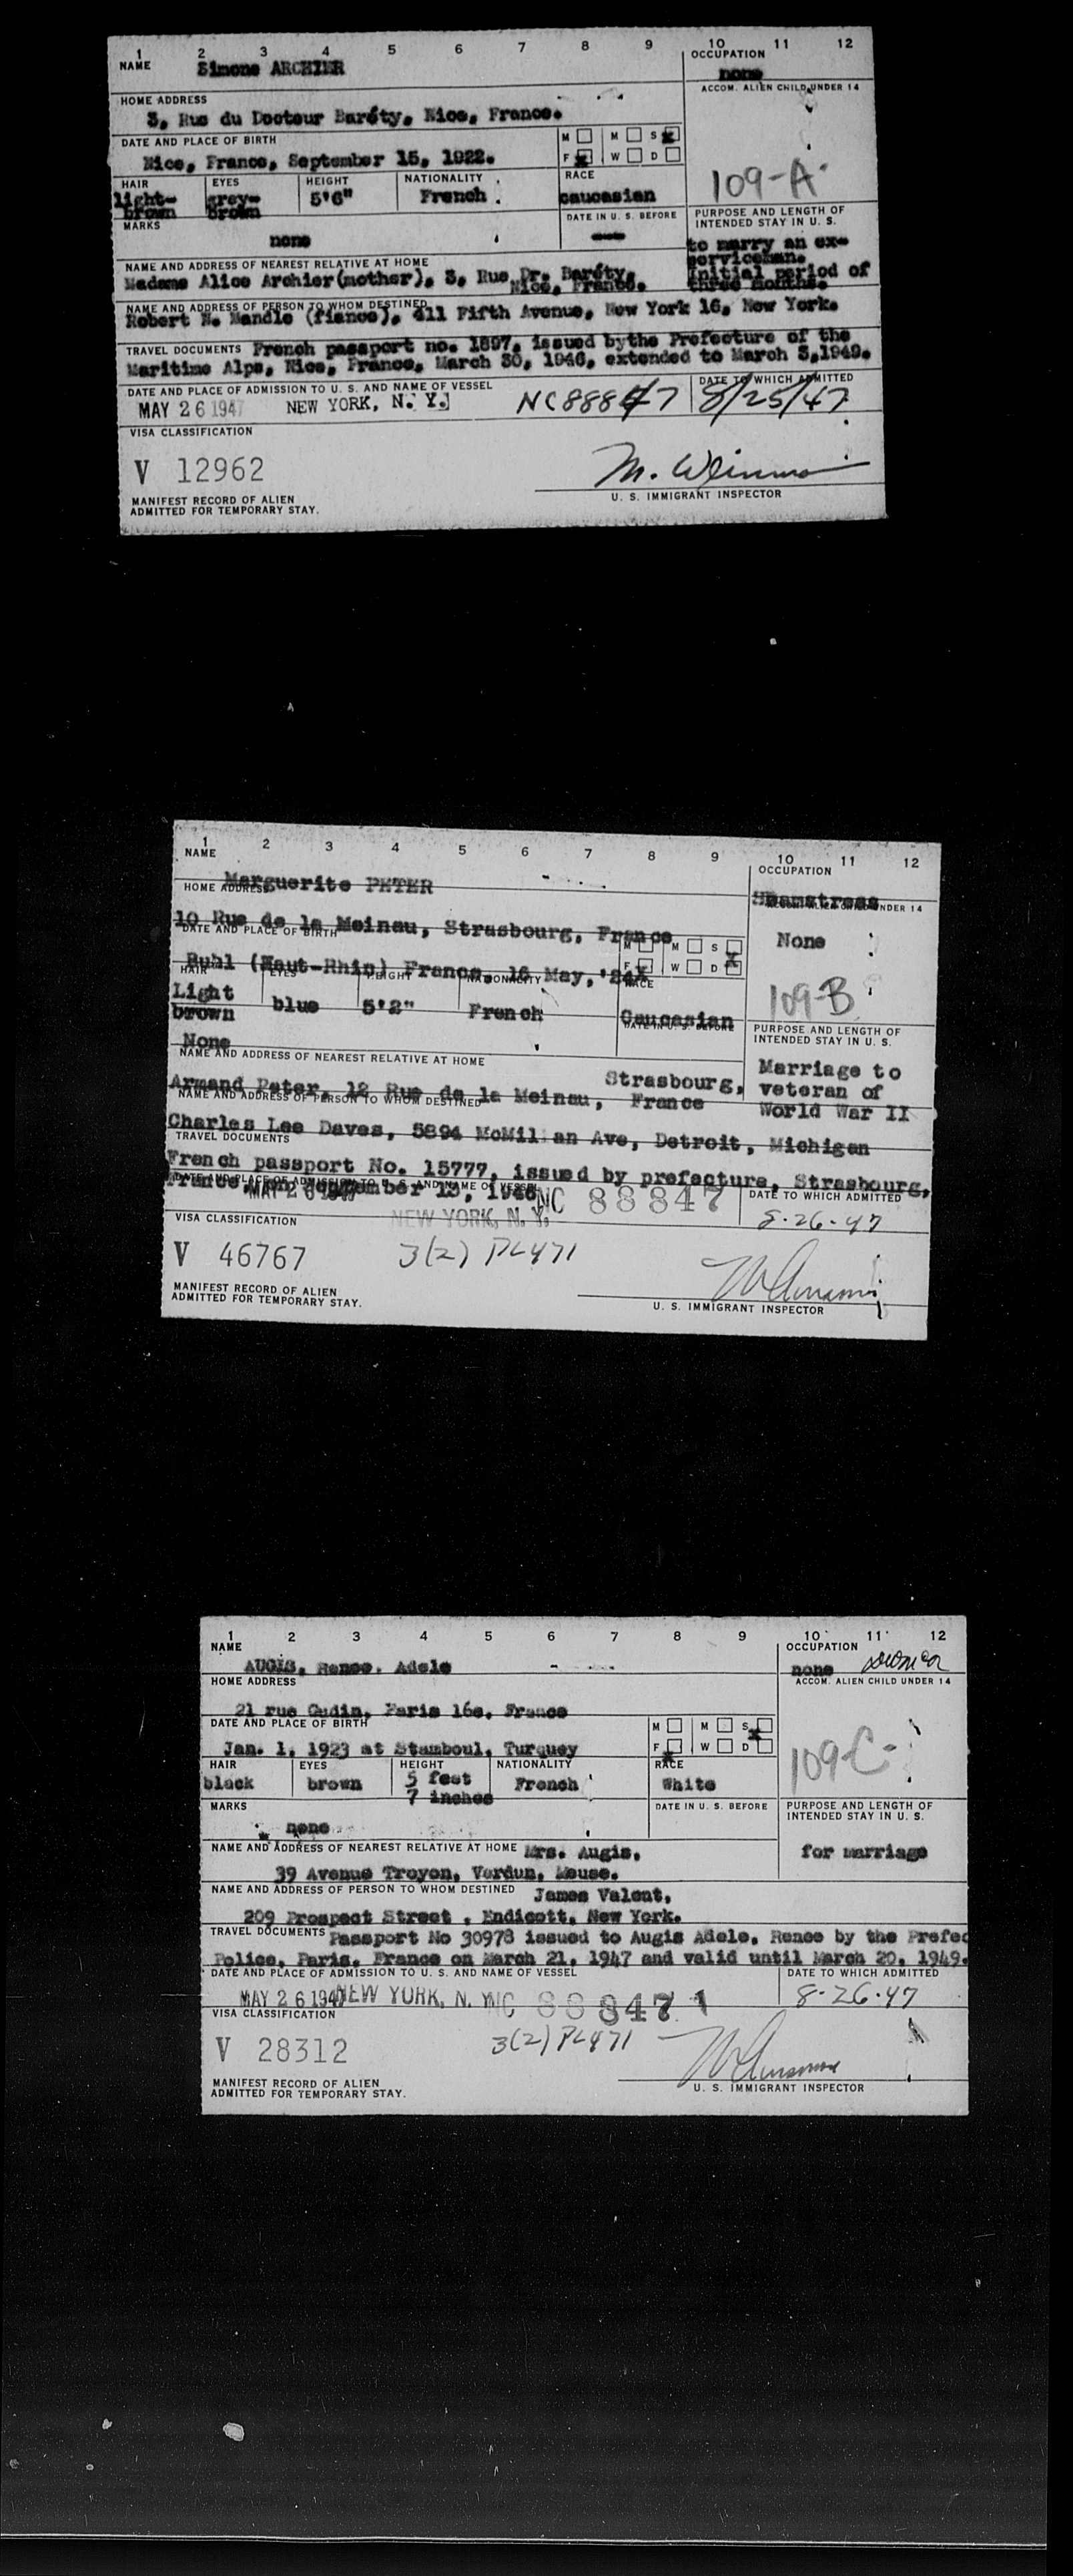 1 2 3 4 5 6 7 8 9 10 11 12
NAME Simone ARCHIER
OCCUPATION none
ACCOM. ALIEN CHILD UNDER 14
HOME ADDRESS
3, Rue du Docteur Baréty, Nice, France.
DATE AND PLACE OF BIRTH
Nice, France, September 15, 1922.
M M S
F W D
HAIR EYES HEIGHT NATIONALITY RACE
light-brown grey-brown 5'6" French caucasian
109-A
MARKS
none
DATE IN U. S. BEFORE
PURPOSE AND LENGTH OF INTENDED STAY IN U. S.
to marry an ex-serviceman.
Initial period of three months.
NAME AND ADDRESS OF NEAREST RELATIVE AT HOME
Madame Alice Archier(mother), 3, Rue Dr. Baréty, Nice, France.
NAME AND ADDRESS OF PERSON TO WHOM DESTINED
Robert N. Mandle (fiance), 411 Fifth Avenue, New York 16, New York.
TRAVEL DOCUMENTS French passport no. 1897, issued bythe Prefecture of the
Maritime Alps, Nice, France, March 30, 1946, extended to March 3,1949.
DATE AND PLACE OF ADMISSION TO U. S. AND NAME OF VESSEL
DATE TO WHICH ADMITTED
MAY 26 1947 NEW YORK, N. Y. NC88847 8/25/47
VISA CLASSIFICATION
V 12962
MANIFEST RECORD OF ALIEN
ADMITTED FOR TEMPORARY STAY.
U. S. IMMIGRANT INSPECTOR
1 2 3 4 5 6 7 8 9 10 11 12
NAME
Marguerite PETER
OCCUPATION
Seamstress
HOME ADDRESS
10 Rue de la Meinau, Strasbourg, France
None
DATE AND PLACE OF BIRTH
M M S
F W D
Buhl (Haut-Rhin) France, 16 May, '24
HAIR EYES HEIGHT NATIONALITY RACE
Light brown blue 5'2" French Caucasian
109-B
DATE IN U. S. BEFORE
PURPOSE AND LENGTH OF INTENDED STAY IN U. S.
None
Marriage to
veteran of
World War II
NAME AND ADDRESS OF NEAREST RELATIVE AT HOME
Armand Peter, 12 Rue de la Meinau, Strasbourg, France
NAME AND ADDRESS OF PERSON TO WHOM DESTINED
Charles Lee Daves, 5894 McMil an Ave, Detroit, Michigan
TRAVEL DOCUMENTS
French passport No. 15777, issued by prefecture, Strasbourg,
DATE AND PLACE OF ADMISSION TO U. S. AND NAME OF VESSEL
DATE TO WHICH ADMITTED
NEW YORK, N. Y. NC 88847 8-26-47
VISA CLASSIFICATION
V 46767 3(2) PL471
MANIFEST RECORD OF ALIEN
ADMITTED FOR TEMPORARY STAY.
U. S. IMMIGRANT INSPECTOR
1 2 3 4 5 6 7 8 9 10 11 12
NAME
AUGIS, Renee, Adele
OCCUPATION
none
ACCOM. ALIEN CHILD UNDER 14
HOME ADDRESS
21 rue Gudin, Paris 16e, France
DATE AND PLACE OF BIRTH
Jan. 1, 1923 at Stamboul, Turquey
M M S
F W D
HAIR EYES HEIGHT NATIONALITY RACE
black brown 5 feet 7 inches French White
109-C
MARKS
none
DATE IN U. S. BEFORE
PURPOSE AND LENGTH OF INTENDED STAY IN U. S.
for marriage
NAME AND ADDRESS OF NEAREST RELATIVE AT HOME Mrs. Augis,
39 Avenue Troyon, Verdun, Meuse.
NAME AND ADDRESS OF PERSON TO WHOM DESTINED James Valent,
209 Prospect Street , Endicott, New York.
TRAVEL DOCUMENTS Passport No 30978 issued to Augis Adele, Renee by the Prefec
Police, Paris, France on March 21, 1947 and valid until March 20, 1949.
DATE AND PLACE OF ADMISSION TO U. S. AND NAME OF VESSEL
DATE TO WHICH ADMITTED
MAY 26 1947 NEW YORK, N. Y. NC 88847 8-26-47
VISA CLASSIFICATION
V 28312 3(2) PL471
MANIFEST RECORD OF ALIEN
ADMITTED FOR TEMPORARY STAY.
U. S. IMMIGRANT INSPECTOR